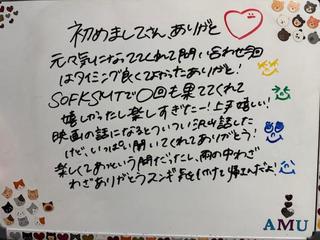 初めましてさん ありがと
元々気になっててくれて問い合わせ今回
はタイミング良くてよかったありがと!
SOFKSMTで〇回も果ててくれて
嬉しかったし楽しすぎたー!上手嬉しい!
映画の話になるとついつい沢山話した
けど、いっぱい聞いてくれてありがとう!
楽しくてあっという間だったし、雨の中わざ
わざありがとうスンギ 気をつけて帰ってね
AMU